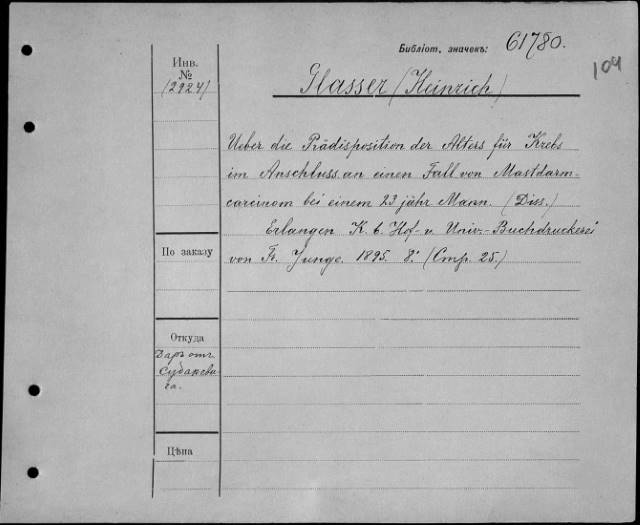 Библіот. значекъ: 61780.
104
Инв.
№
(2924)
Glasser (Heinrich)
Ueber die Prädisposition der Alters für Krebs
im Anschluss an einen Fall von Mastdarm-
carcinom bei einem 23 jähr Mann. (Diss.)
Erlangen K. b. Hof- u. Univ.-Buchdruckerei
von Fr. Junge. 1895. 8°. (Стр. 25.)
По заказу
Откуда
Даръ отъ
Цѣна